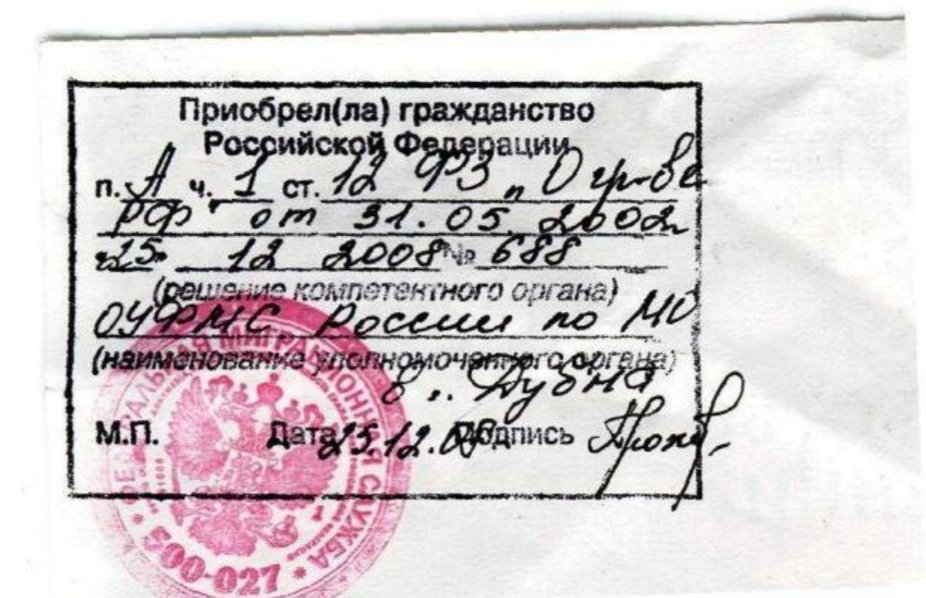 Приобрел(ла) гражданство
Российской Федерации
п. А ч. 1 ст. 12 ФЗ „О гр-ве
РФ" от 31.05.2002г
"25" 12 2008 № 688
(решение компетентного органа)
ОУФМС России по МО
(наименование уполномоченного органа)
в г. Дубна
М.П. Дата 25.12.08 Подпись
ФЕДЕРАЛЬНАЯ МИГРАЦИОННАЯ СЛУЖБА
* 500-027 *